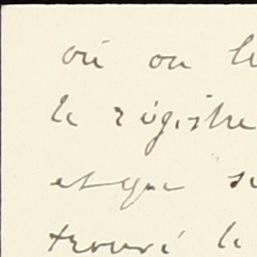 où on le
le régistre
et que s
trouvé le